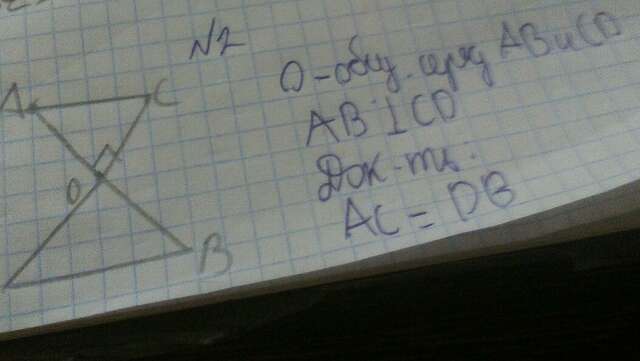 N2
О-общ. серед AB и CD
AB ⊥ CD
Док-ть.
AC = DB
A
C
O
B